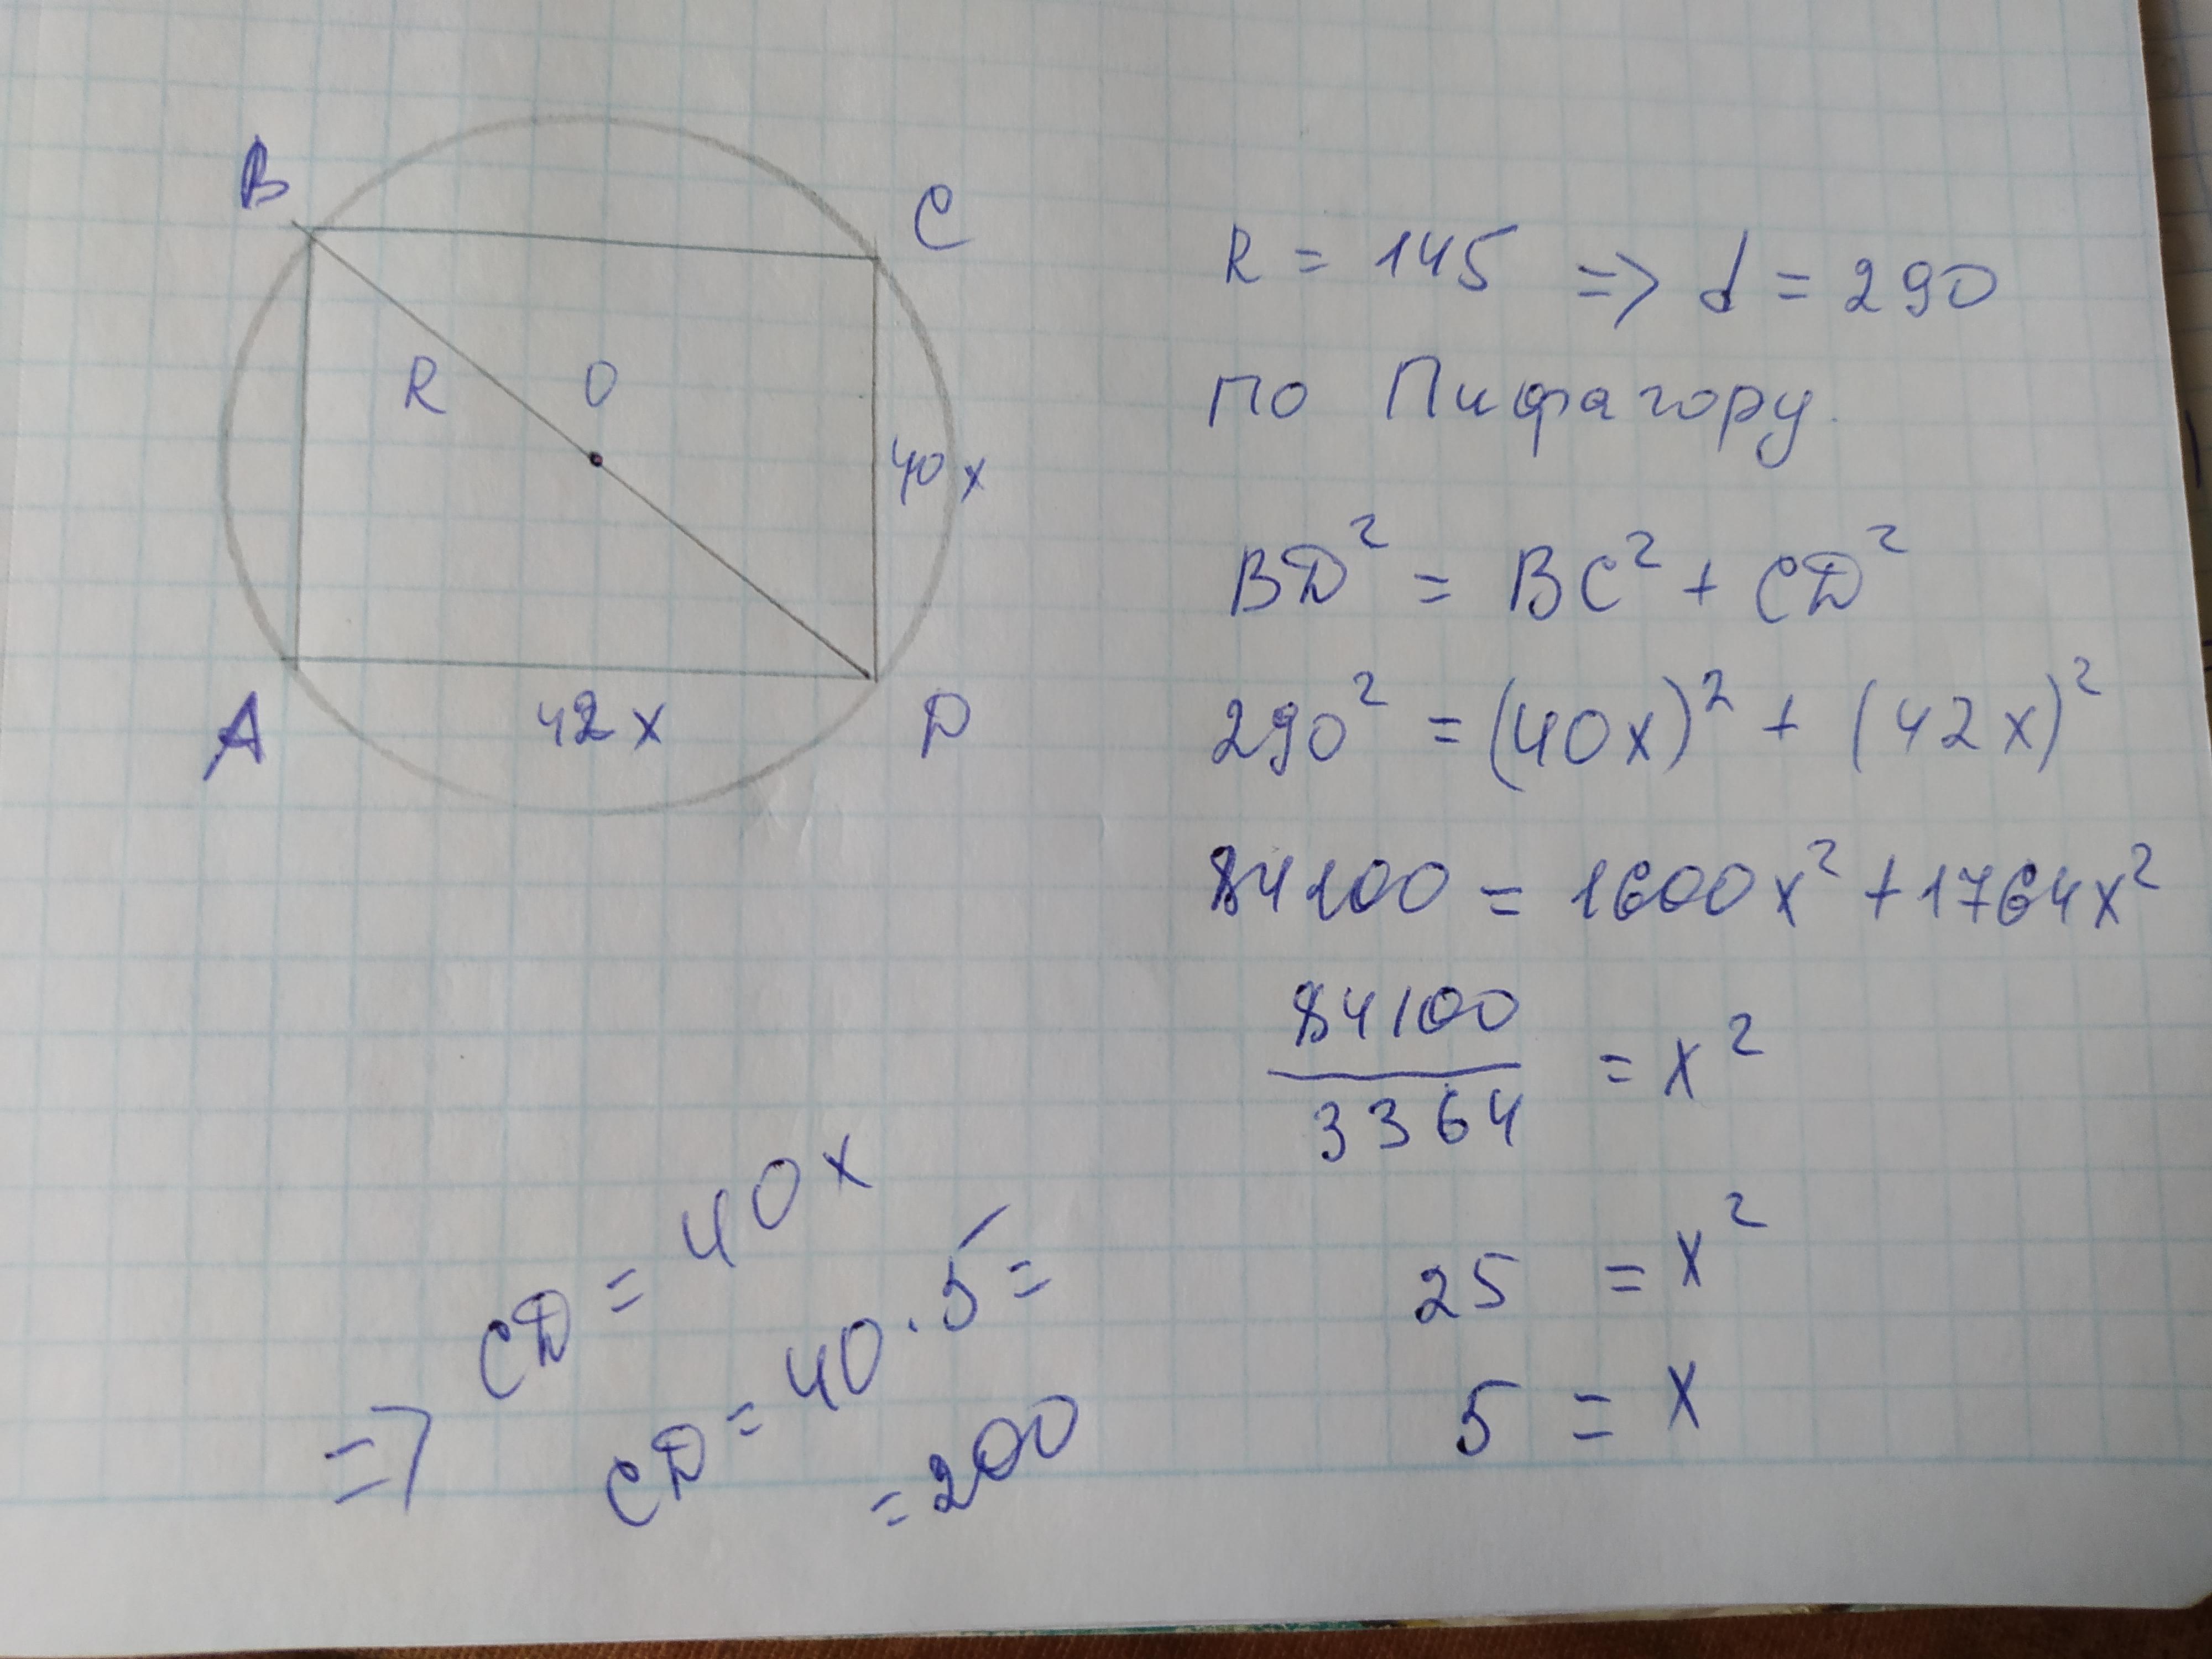 B
C
R
O
40x
A
42x
D
R = 145 => d = 290
по Пифагору.
BD² = BC² + CD²
290² = (40x)² + (42x)²
84100 = 1600x² + 1764x²
84100
3364
= x²
25 = x²
5 = x
=> CD = 40x
CD = 40 · 5 =
= 200